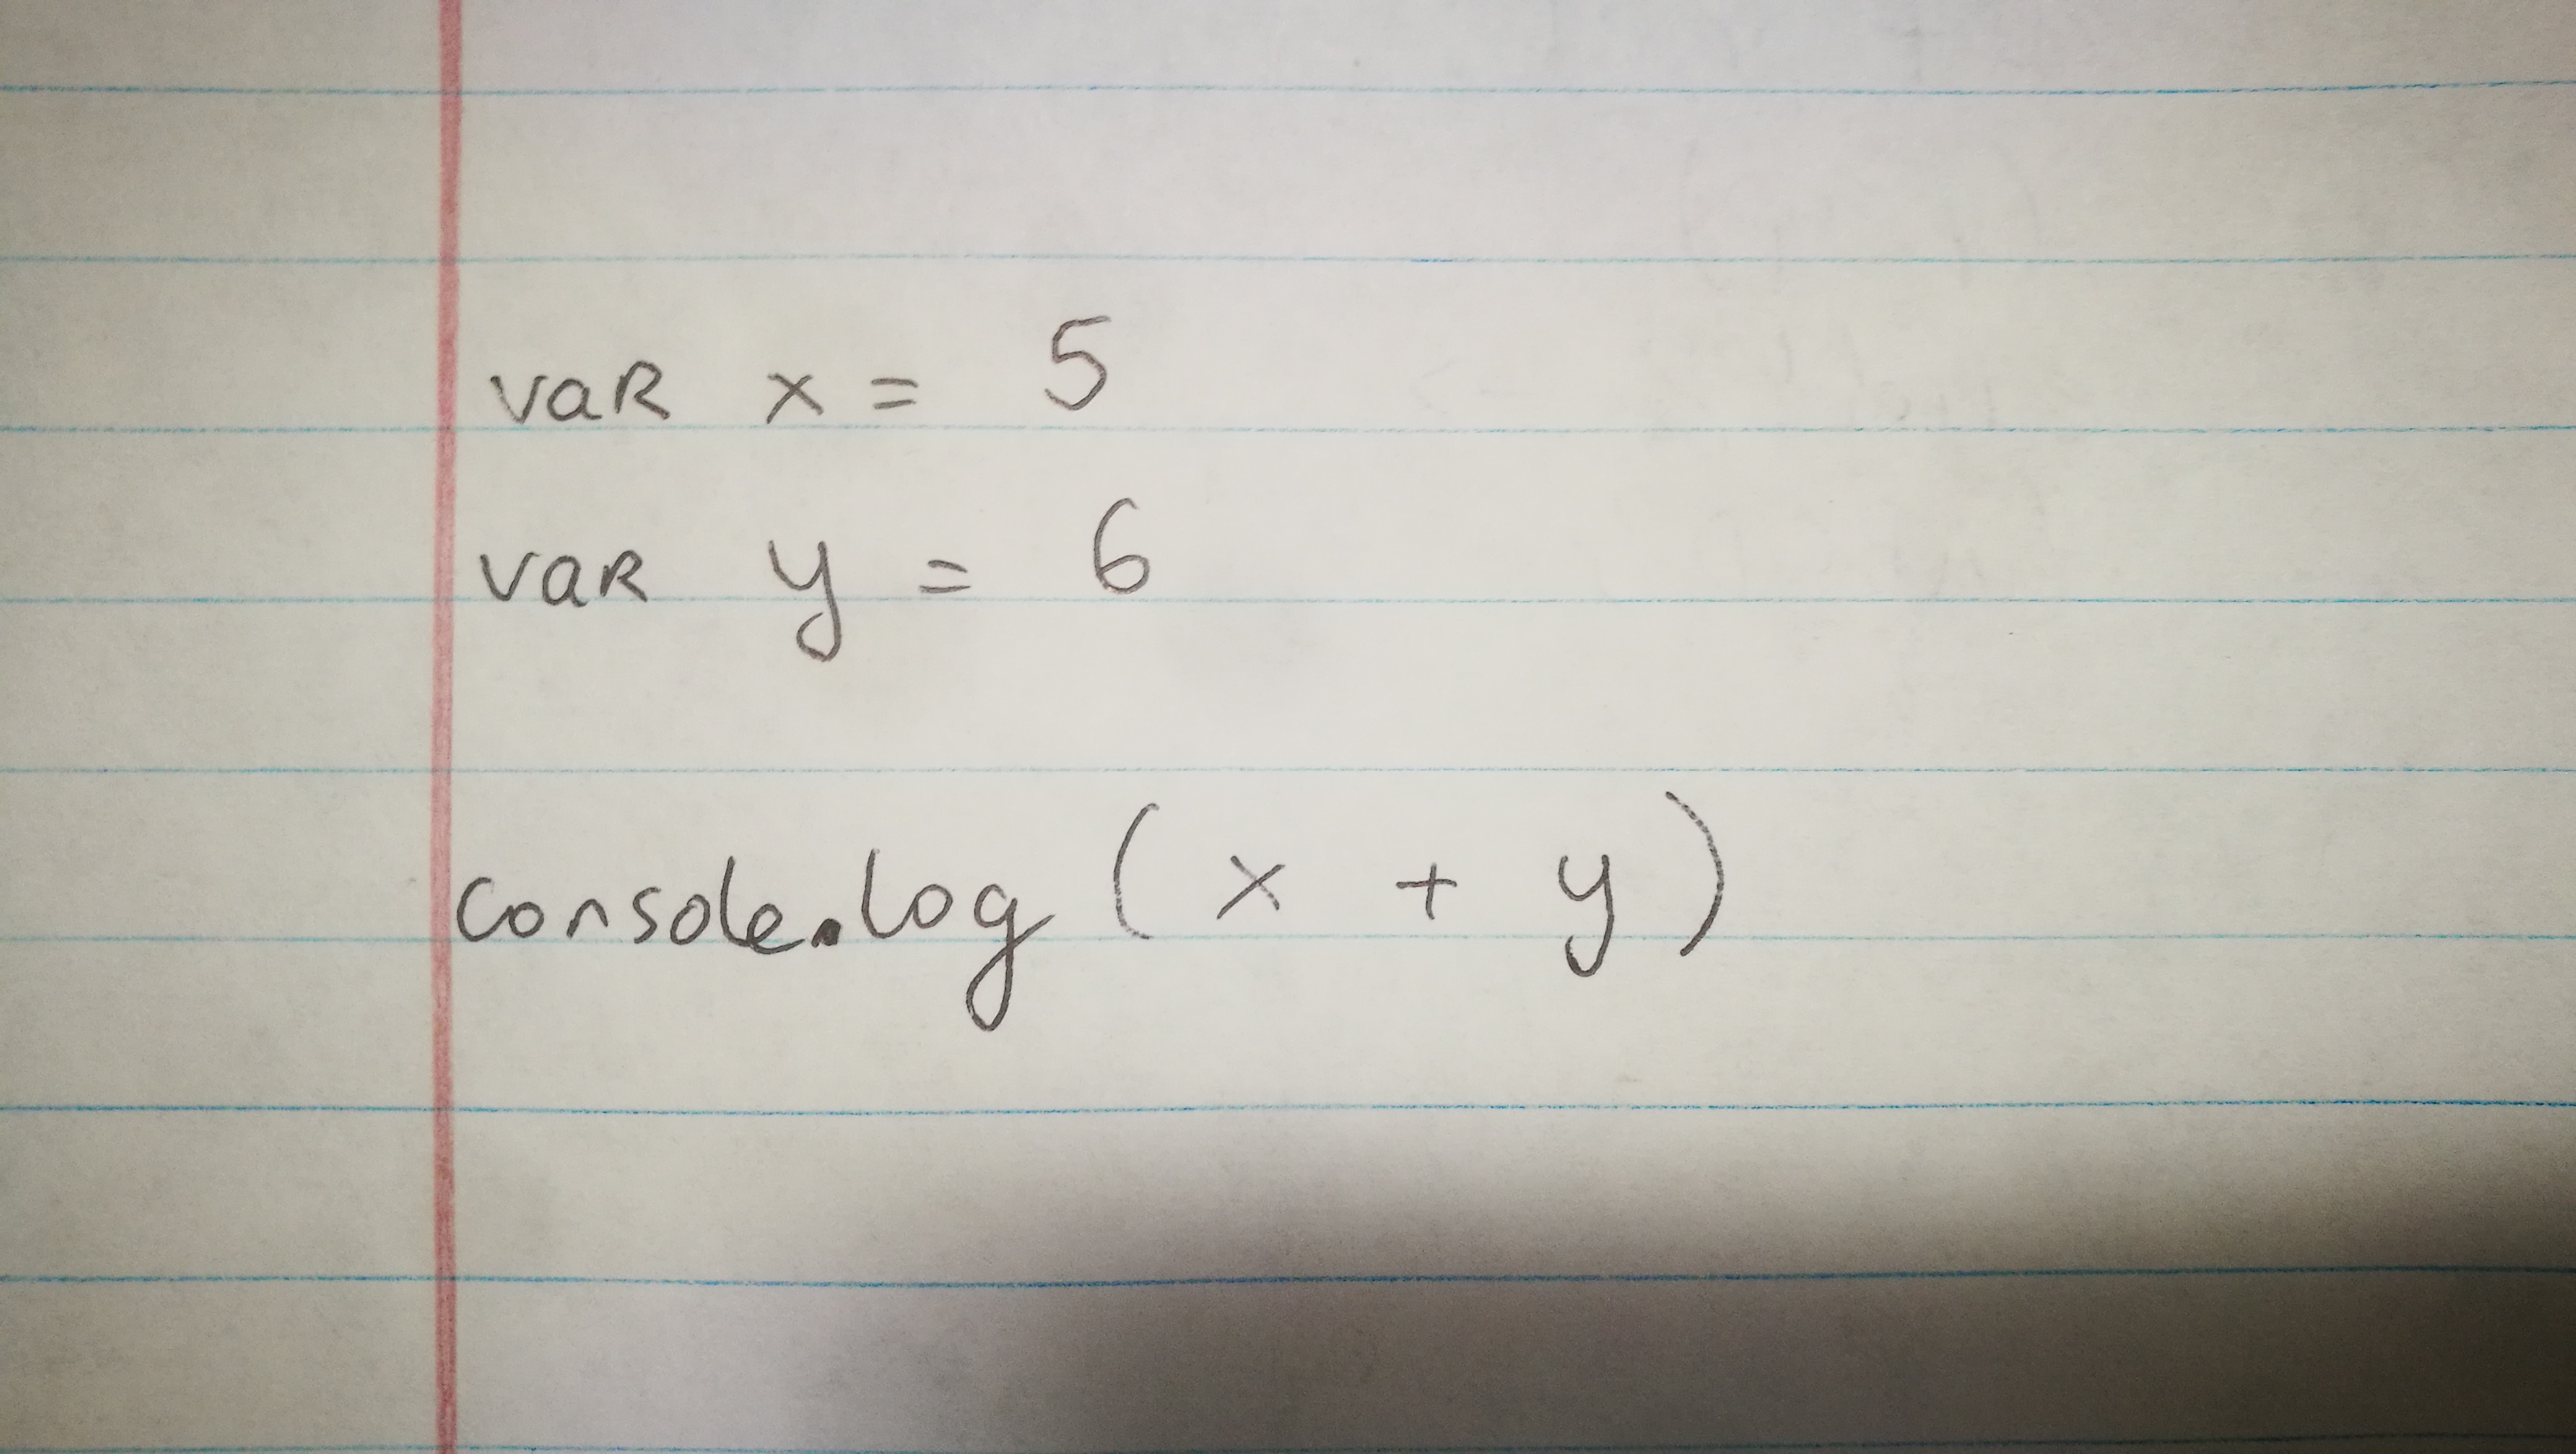 var x = 5
var y = 6
console.log ( x + y )